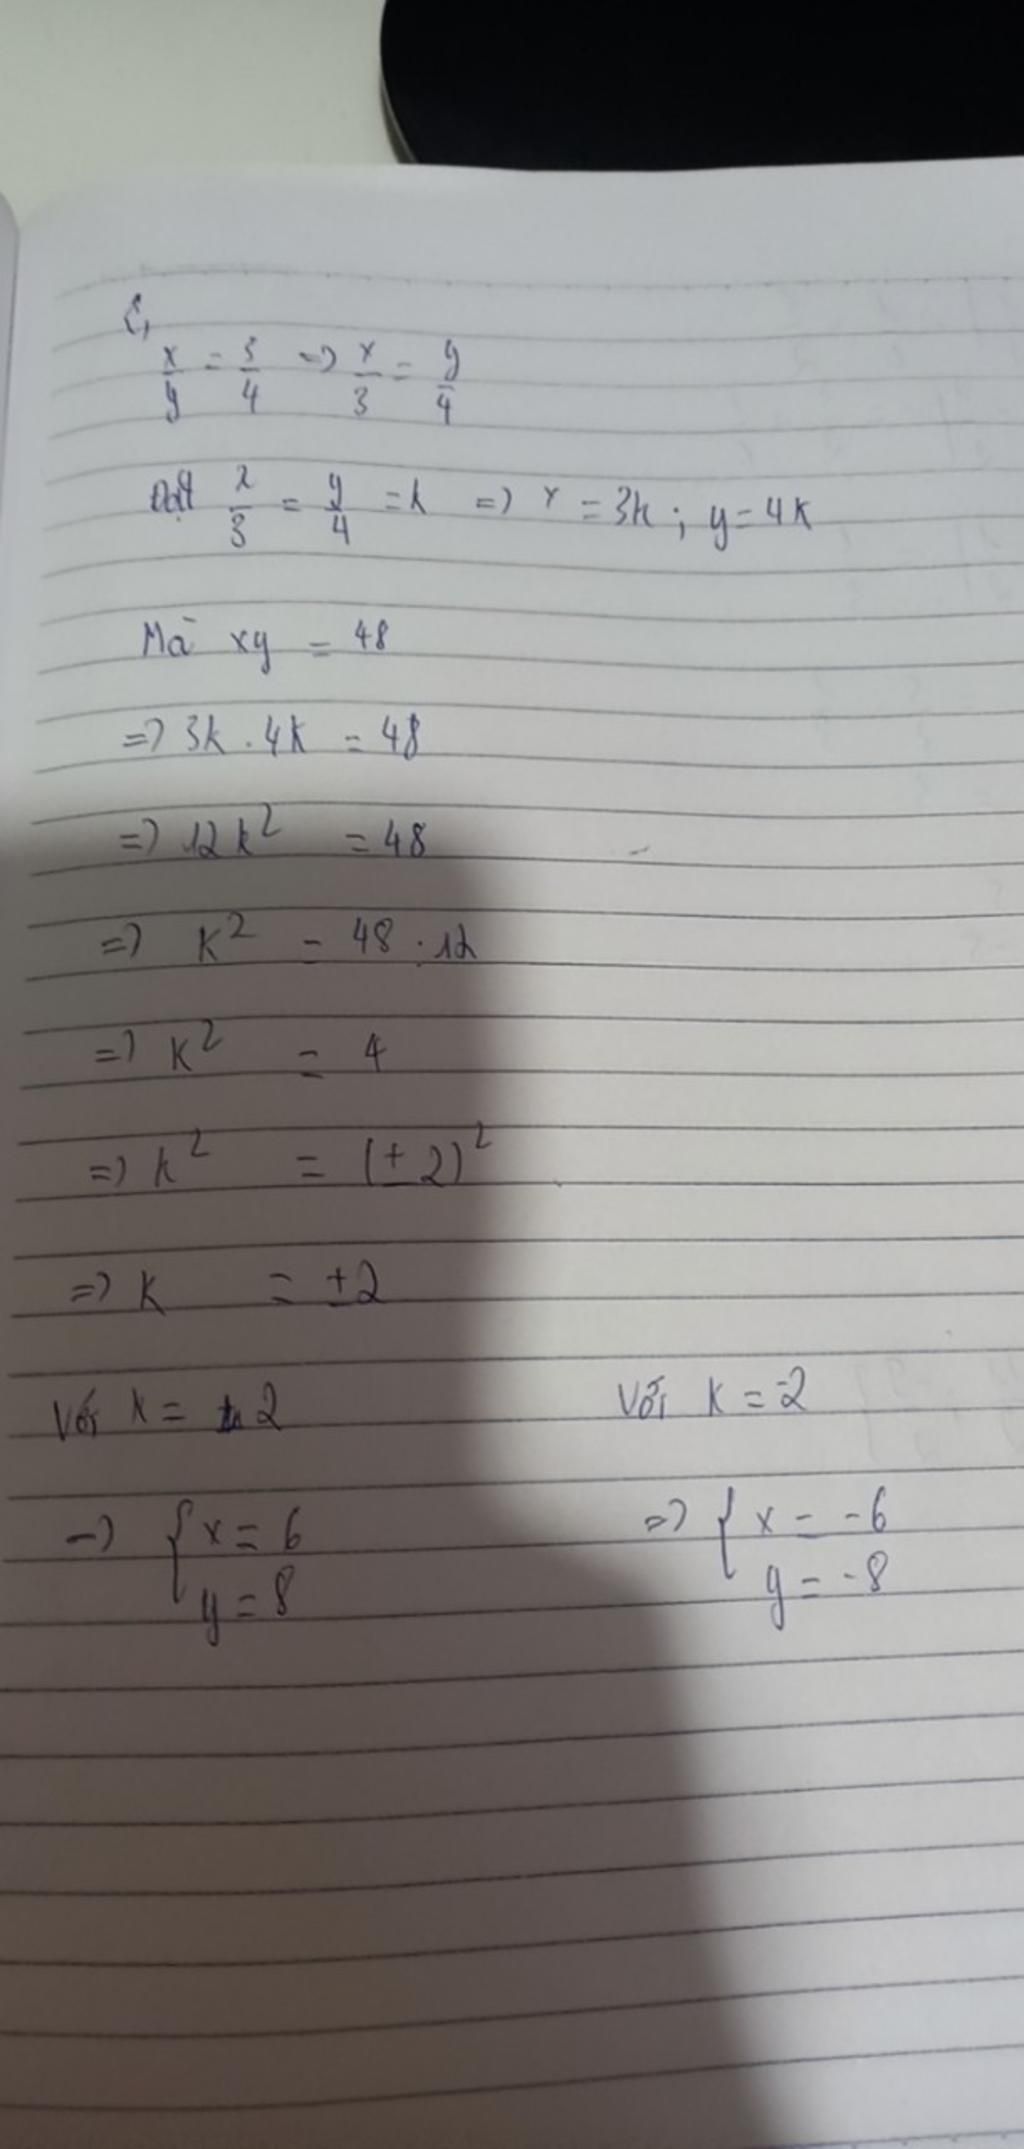 c,
x/y = 3/4 => x/3 = y/4
Đặt x/3 = y/4 = k => x = 3k ; y = 4k
Mà xy = 48
=> 3k . 4k = 48
=> 12k² = 48
=> k² = 48 . 12
=> k² = 4
=> k² = (± 2)²
=> k = ±2
Với k = 2 Với k = -2
=> { x = 6 => { x = -6
y = 8 y = -8